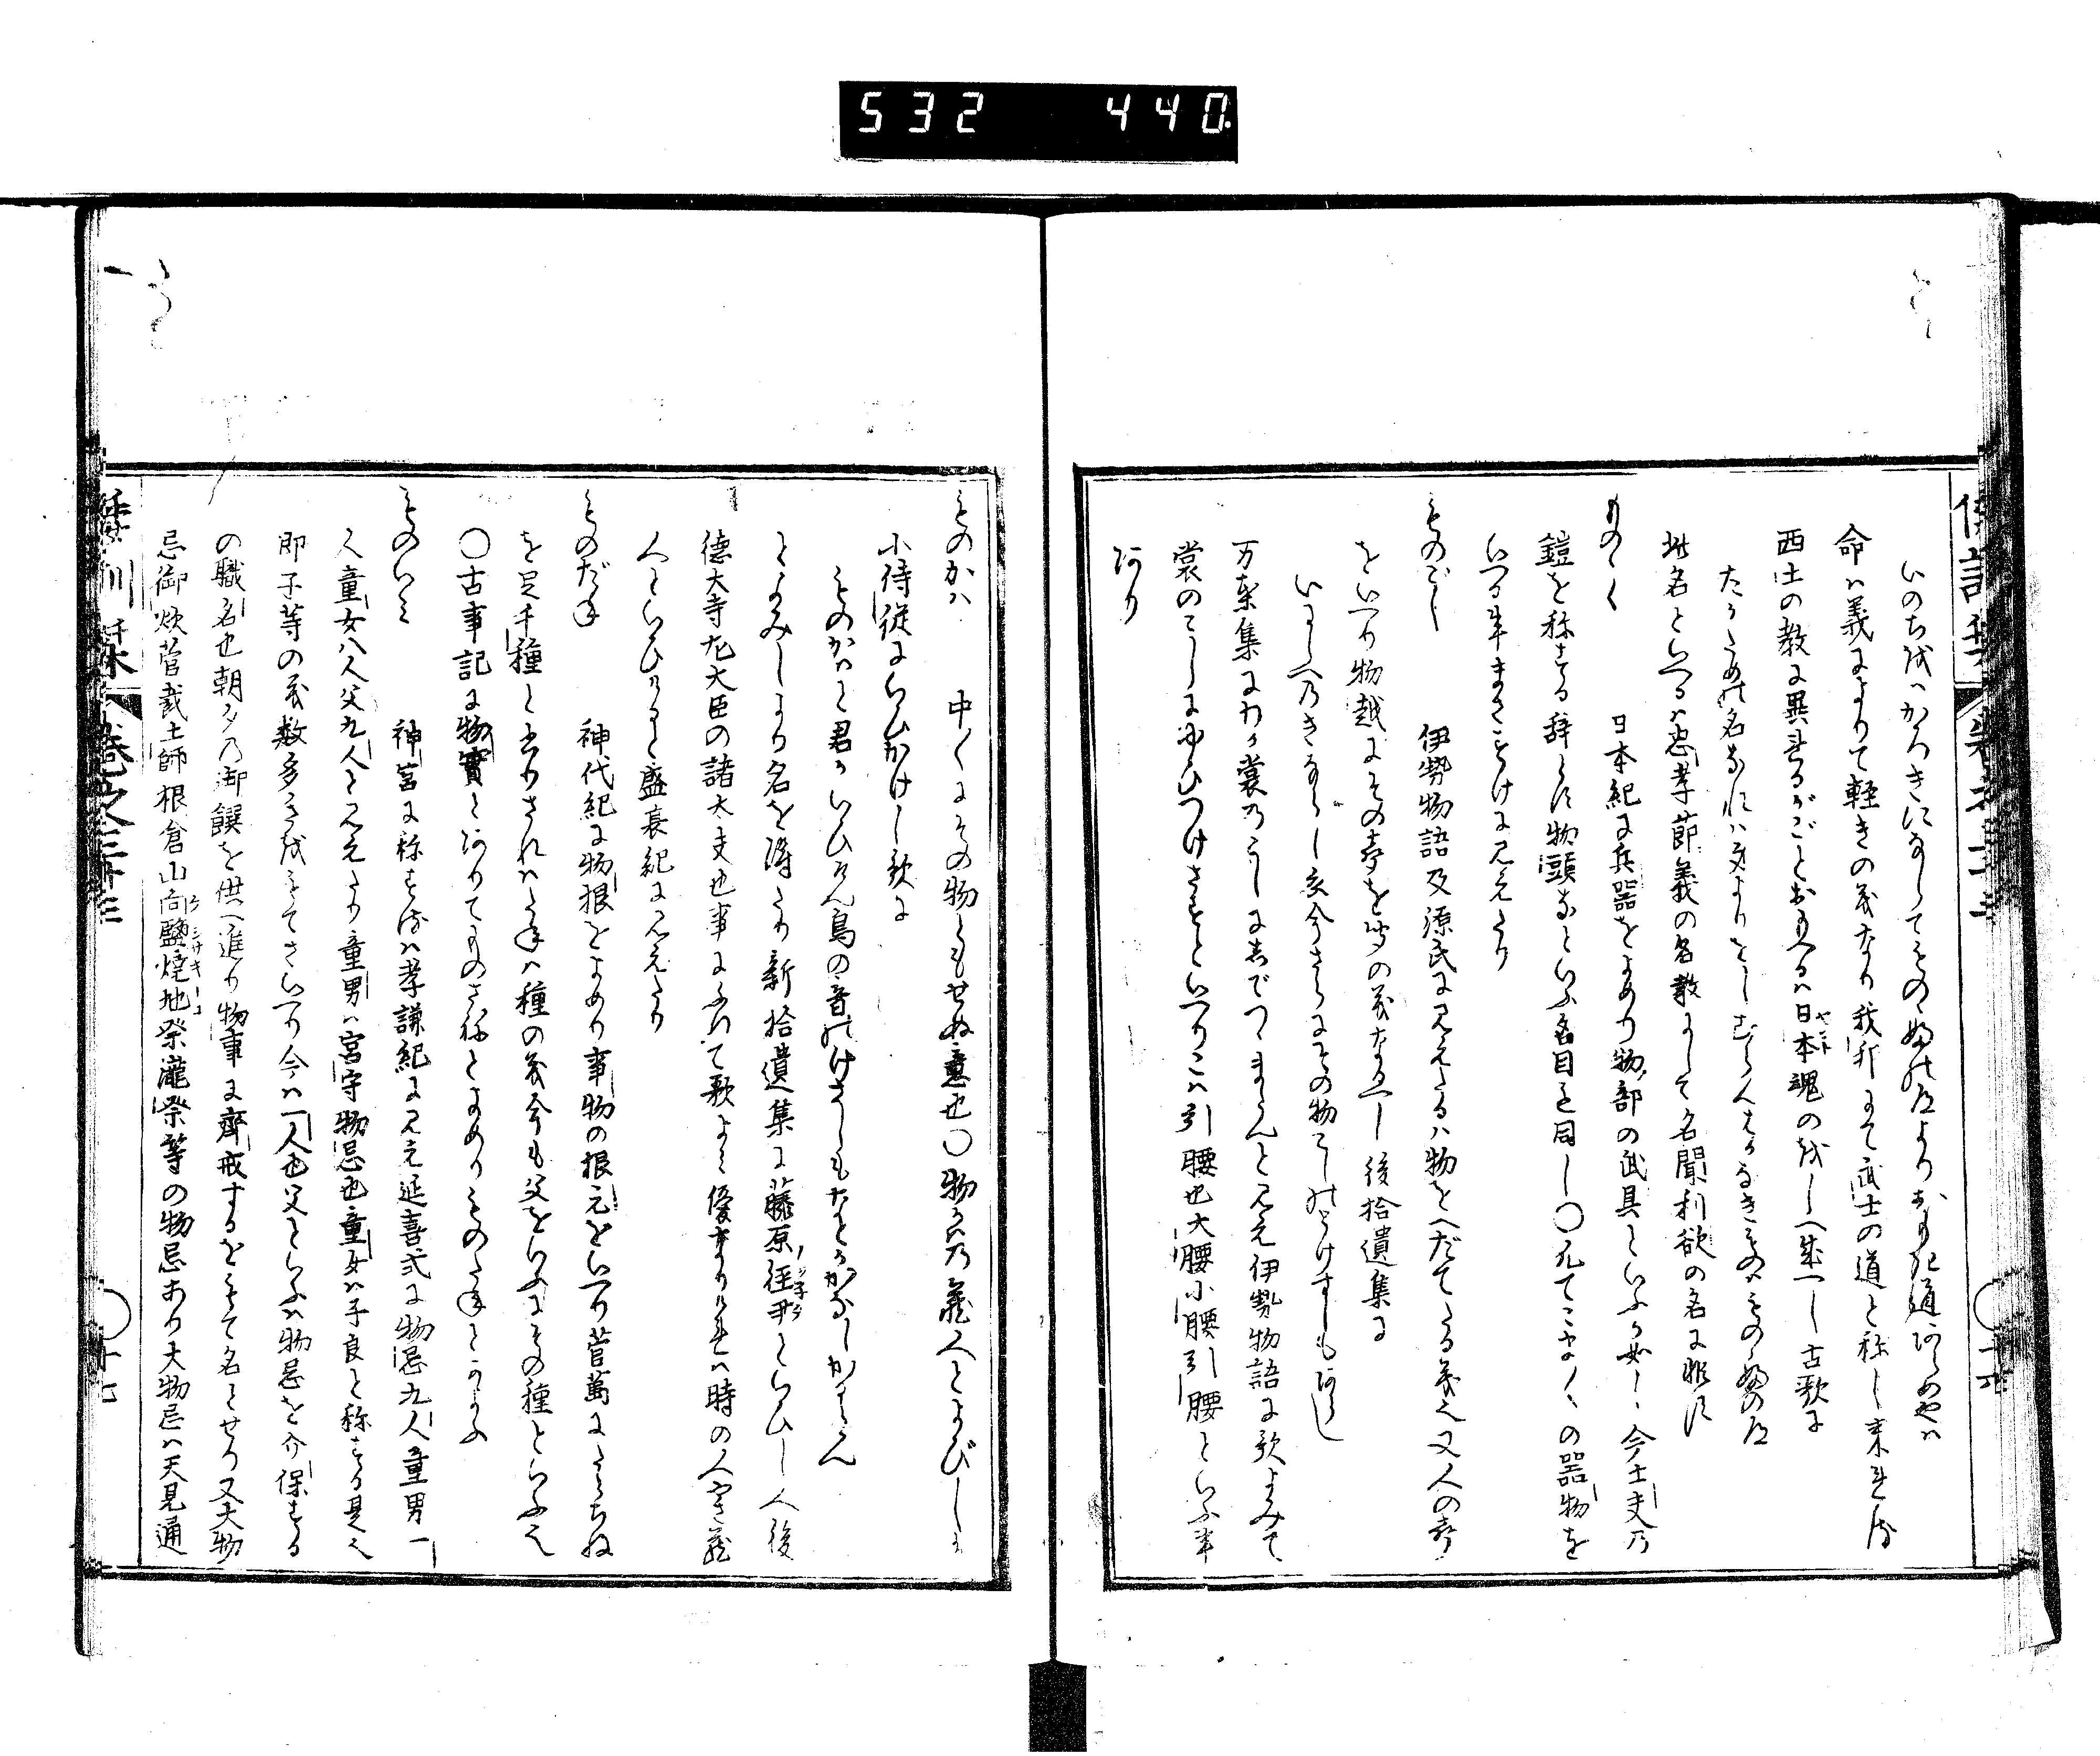 532 440
いのちはかろきになしてものゝふの道よりおもき道あらめやは
命は義によりて軽きの義なり我邦にて武士の道と称し来れる
西土の教に異なるがごとおもへるは日本魂のをしへ成へし古歌に
ヤマト
此名といへるは忠孝節義の名教にして名聞利欲の名に非す
ものゝぐ 日本紀に兵器をよめり物部の武具といふか如し今士夫の
鎧を称する辞とす物頭なといふ名目も同し〇凡てこまか〳〵の器物を
いへる事まさすけに見えたり
ものごし 伊勢物語及源氏に見えたるは物をへだてたる義也又人の声
をいへり物越にその声を聞の義なるへし後拾遺集に
いにしへのきならし衣今さらにその物こしのとけすしもあらし
万葉集にわか裳のこしに出てつゝまんと見え伊勢物語に歌よみて
裳のこしにゆひつけさすといへりこは引腰也大腰小腰引腰といふ事
あり
ものかは 中〳〵にその物ともせぬ意也〇物かはの蔵人とよびしは
小侍従にいひかけし歌に
ものかはと君かいひけん鳥の音のけさしもなとかかなしかるらん
とよみしより名を得たり新拾遺集に藤原経尹といひし人後
ノ ツ子タタ
徳大寺左大臣の諸大夫也事にふれて歌よみ優なりけれは時の人やさ蔵
人といひけると盛衰紀に見えたり
ものだね 神代紀に物根をよめり事物の根元をいへり菅萬にたらちね
を足千種と書りされはたねは種の義今も父をいふにその種といふ也
〇古事記に物實とありてものざねとよめりものたねとかよふ
ものいみ 神宮に称するは孝謙紀に見え延喜式に物忌九人童男一
人童女八人父九人と見えたり童男は宮守物忌也童女は子良と称する是也
即子等の義数多きをもてさいへり今は一人也父といふは物忌を介保する
の職名也朝夕の御饌を供へ進り物事に齋戒するをもて名とせり又大物
忌御炊菅裁土師根倉山向鹽焼地祭瀧祭等の物忌あり大物忌は天見通
十七